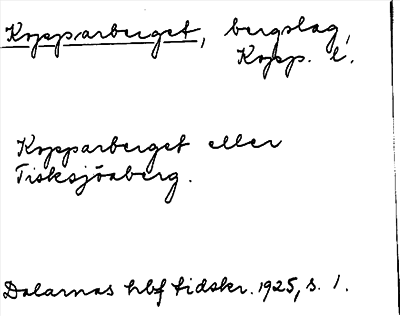 Kopparberget, bergslag,
Kopp. l.
Kopparberget eller
Tisksjöaberg.
Dalarnas hbf tidskr. 1925, s. 1.